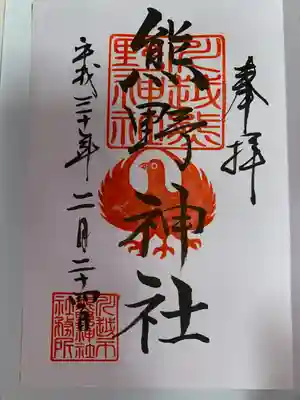 奉拝
川越熊
野神社
熊野神社
平成三十年二月二十四日
川越市
熊野神社
社務所